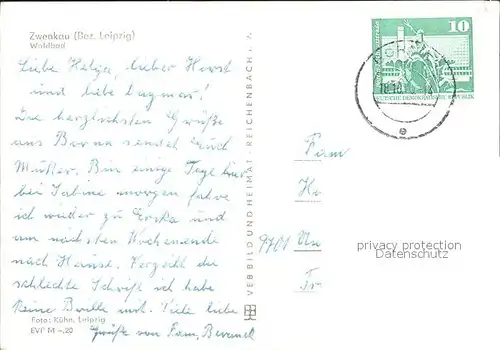 Zwenkau (Bez. Leipzig)
Waldbad
Liebe Helga, lieber Horst
und liebe Dagmar!
Die herzlichsten Grüße
aus Borna sendet Euch
Mutter. Bin einige Tage hier
bei Sabine morgen fahre
ich wieder zu Erika und
am nächsten Wochenende
nach Hause. Verzeiht die
schlechte Schrift ich habe
keine Brille mit. Viele liebe
Grüße von Fam.
Foto: Kühn, Leipzig
EVP M -.20
VEB BILD UND HEIMAT REICHENBACH i. V.
10
DEUTSCHE DEMOKRATISCHE REPUBLIK
Fam
He
9701 Un
Tr
privacy protection
Datenschutz